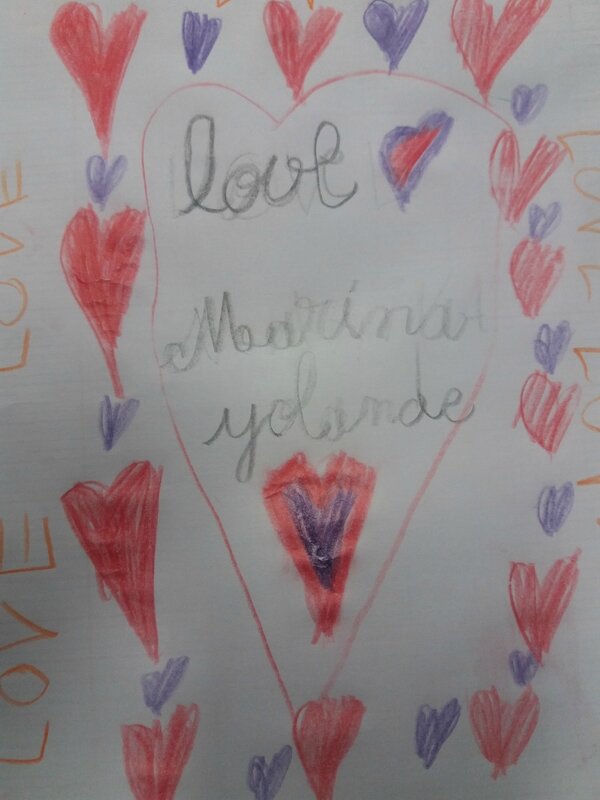 love
Marina
yolande
LOVE
LOVE
LOVE